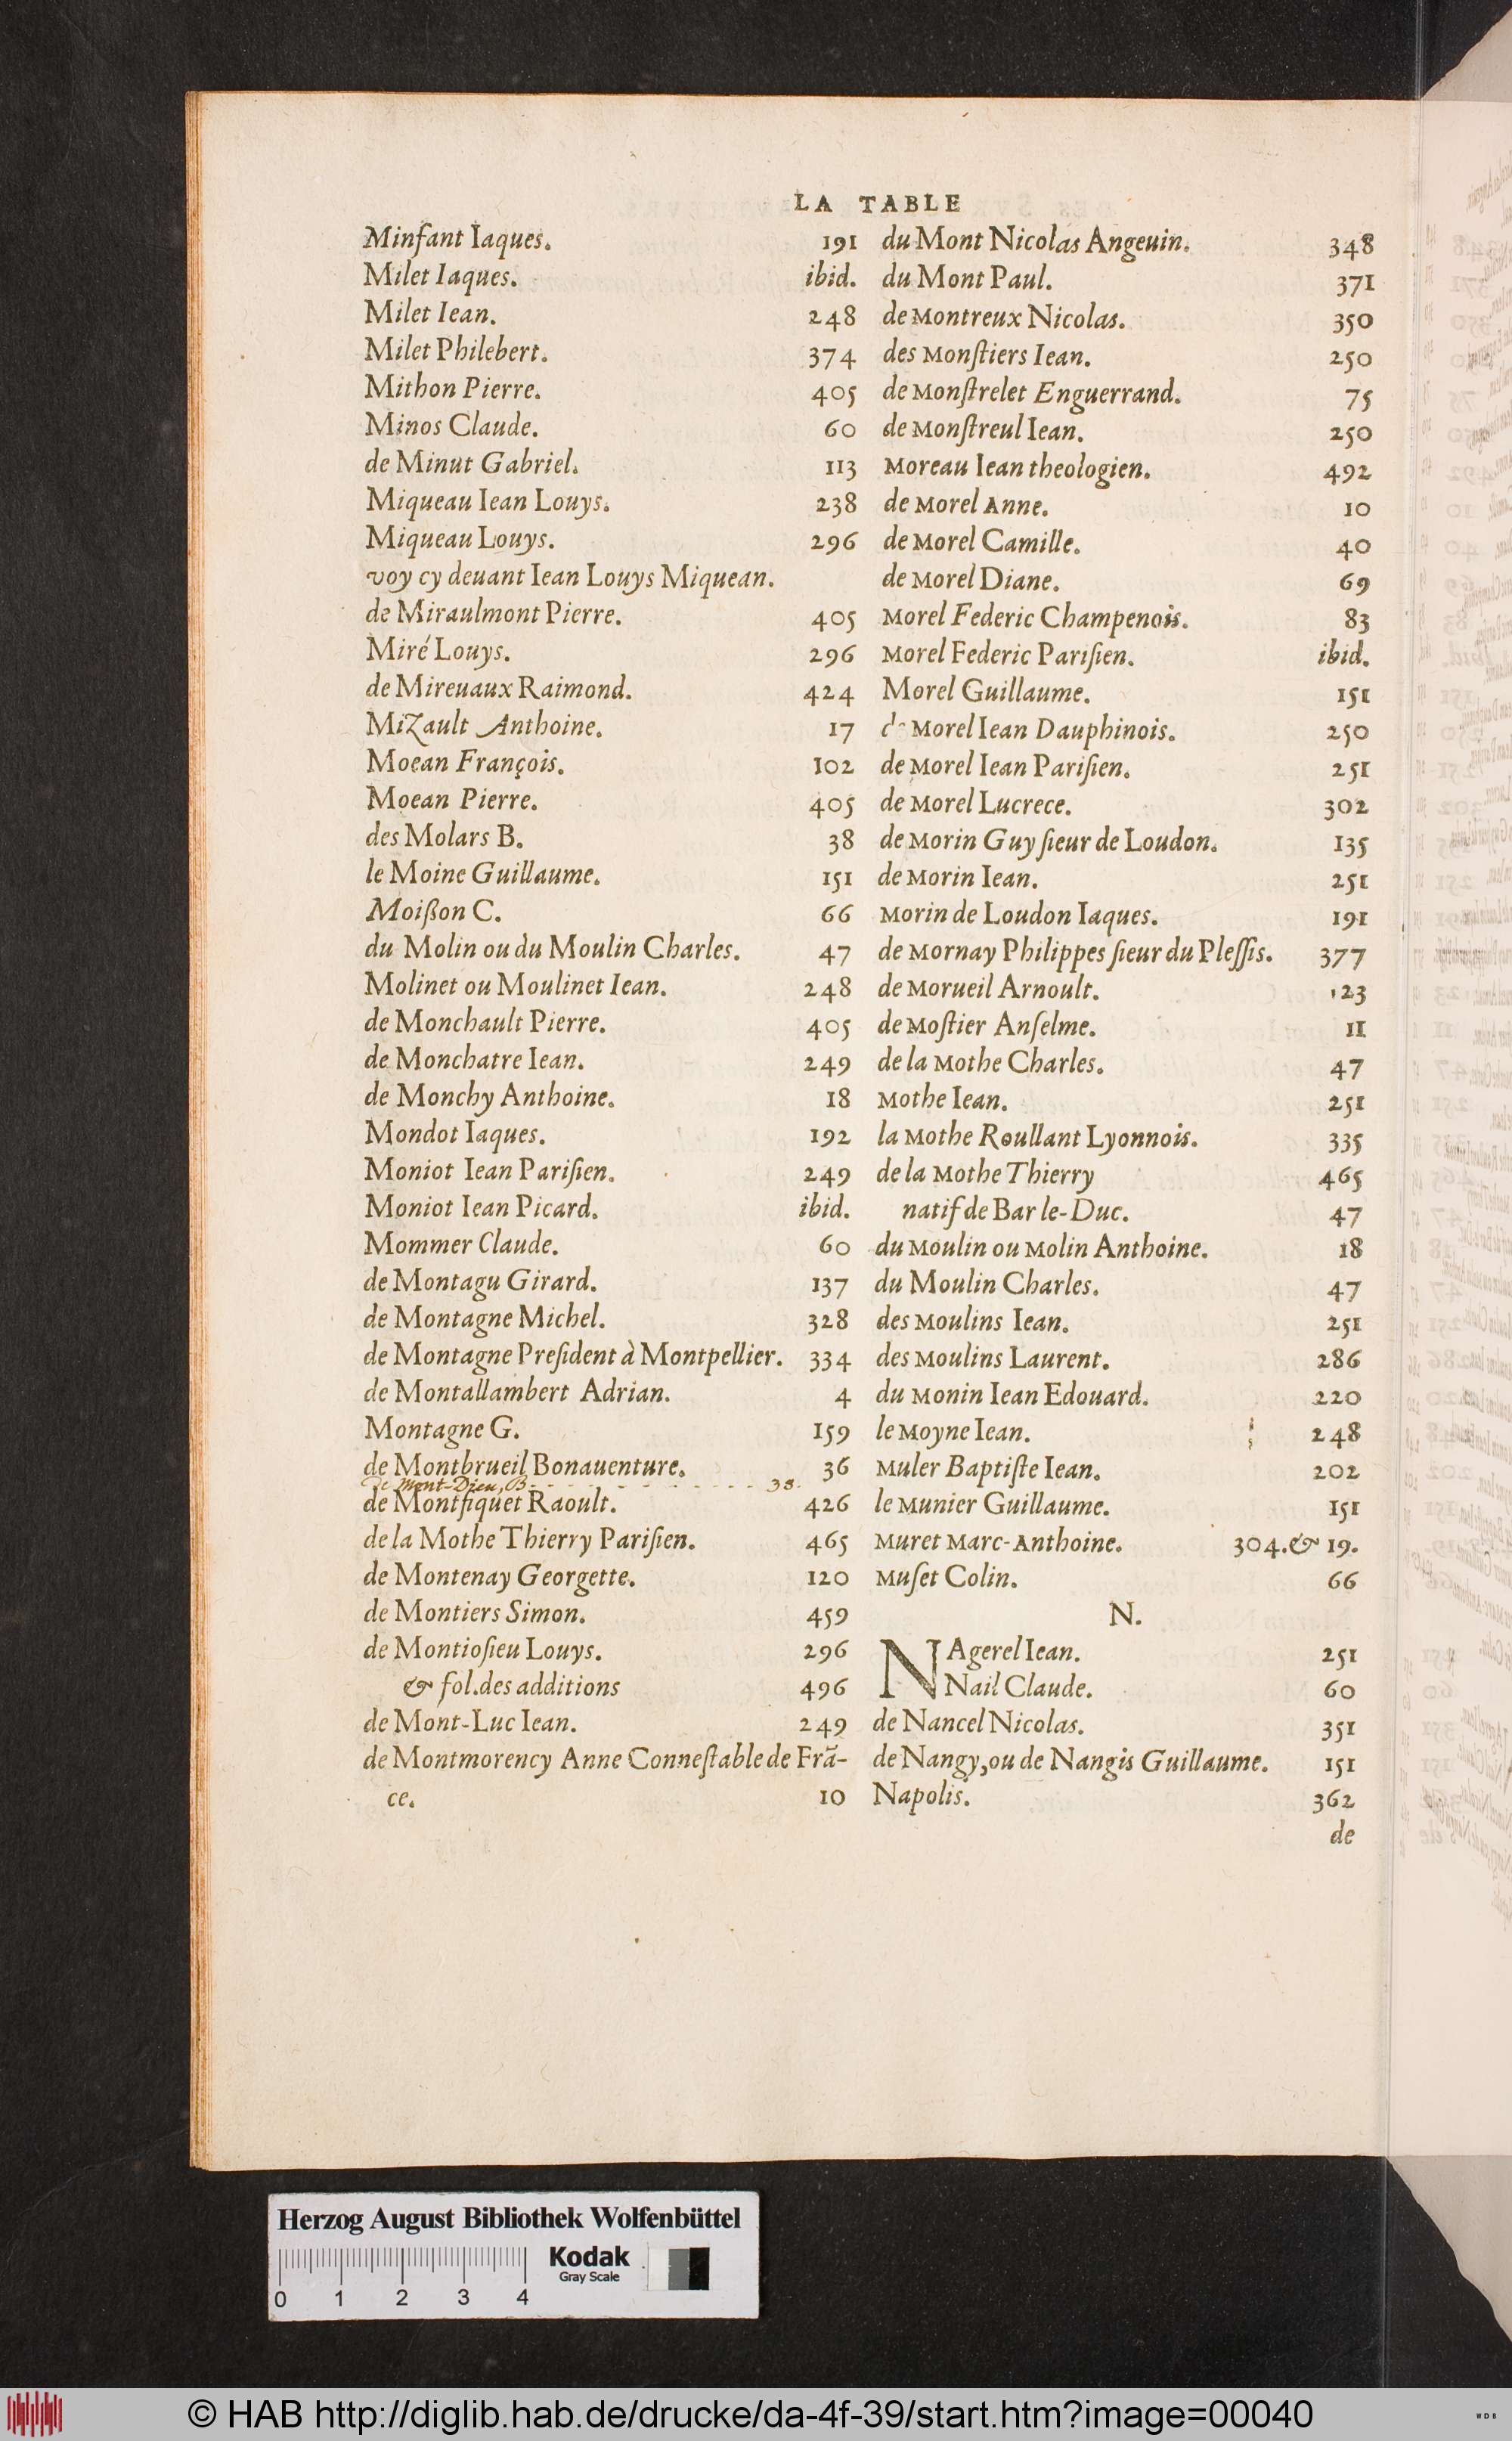 LA TABLE
Minfant Iaques. 191
Milet Iaques. ibid.
Milet Iean. 248
Milet Philebert. 374
Mithon Pierre. 405
Minos Claude. 60
de Minut Gabriel. 113
Miqueau Iean Louys. 238
Miqueau Louys. 296
voy cy deuant Iean Louys Miquean.
de Miraulmont Pierre. 405
Miré Louys. 296
de Mireuaux Raimond. 424
Mizault Anthoine. 17
Moean François. 102
Moean Pierre. 405
des Molars B. 38
le Moine Guillaume. 151
Moißon C. 66
du Molin ou du Moulin Charles. 47
Molinet ou Moulinet Iean. 248
de Monchault Pierre. 405
de Monchatre Iean. 249
de Monchy Anthoine. 18
Mondot Iaques. 192
Moniot Iean Pariſien. 249
Moniot Iean Picard. ibid.
Mommer Claude. 60
de Montagu Girard. 137
de Montagne Michel. 328
de Montagne Preſident à Montpellier. 334
de Montallambert Adrian. 4
Montagne G. 159
de Montbrueil Bonauenture. 36
de Mont-Dieu, B. - - - - - - - - - - - 38.
de Montfiquet Raoult. 426
de la Mothe Thierry Pariſien. 465
de Montenay Georgette. 120
de Montiers Simon. 459
de Montioſieu Louys. 296
& fol.des additions 496
de Mont-Luc Iean. 249
de Montmorency Anne Conneſtable de Frã-
ce. 10
du Mont Nicolas Angeuin. 348
du Mont Paul. 371
de Montreux Nicolas. 350
des Monſtiers Iean. 250
de Monſtrelet Enguerrand. 75
de Monſtreul Iean. 250
Moreau Iean theologien. 492
de Morel Anne. 10
de Morel Camille. 40
de Morel Diane. 69
Morel Federic Champenois. 83
Morel Federic Pariſien. ibid.
Morel Guillaume. 151
de Morel Iean Dauphinois. 250
de Morel Iean Pariſien. 251
de Morel Lucrece. 302
de Morin Guy ſieur de Loudon. 135
de Morin Iean. 251
Morin de Loudon Iaques. 191
de Mornay Philippes ſieur du Pleſſis. 377
de Morueil Arnoult. 23
de Moſtier Anſelme. 11
de la Mothe Charles. 47
Mothe Iean. 251
la Mothe Roullant Lyonnois. 335
de la Mothe Thierry 465
natif de Bar le-Duc. 47
du Moulin ou Molin Anthoine. 18
du Moulin Charles. 47
des Moulins Iean. 251
des Moulins Laurent. 286
du Monin Iean Edouard. 220
le Moyne Iean. 248
Muler Baptiſte Iean. 202
le Munier Guillaume. 151
Muret Marc-Anthoine. 304.& 19.
Muſet Colin. 66
N.
NAgerel Iean. 251
Nail Claude. 60
de Nancel Nicolas. 351
de Nangy,ou de Nangis Guillaume. 151
Napolis. 362
de
Herzog August Bibliothek Wolfenbüttel
Kodak
Gray Scale
0 1 2 3 4
© HAB http://diglib.hab.de/drucke/da-4f-39/start.htm?image=00040
WDB